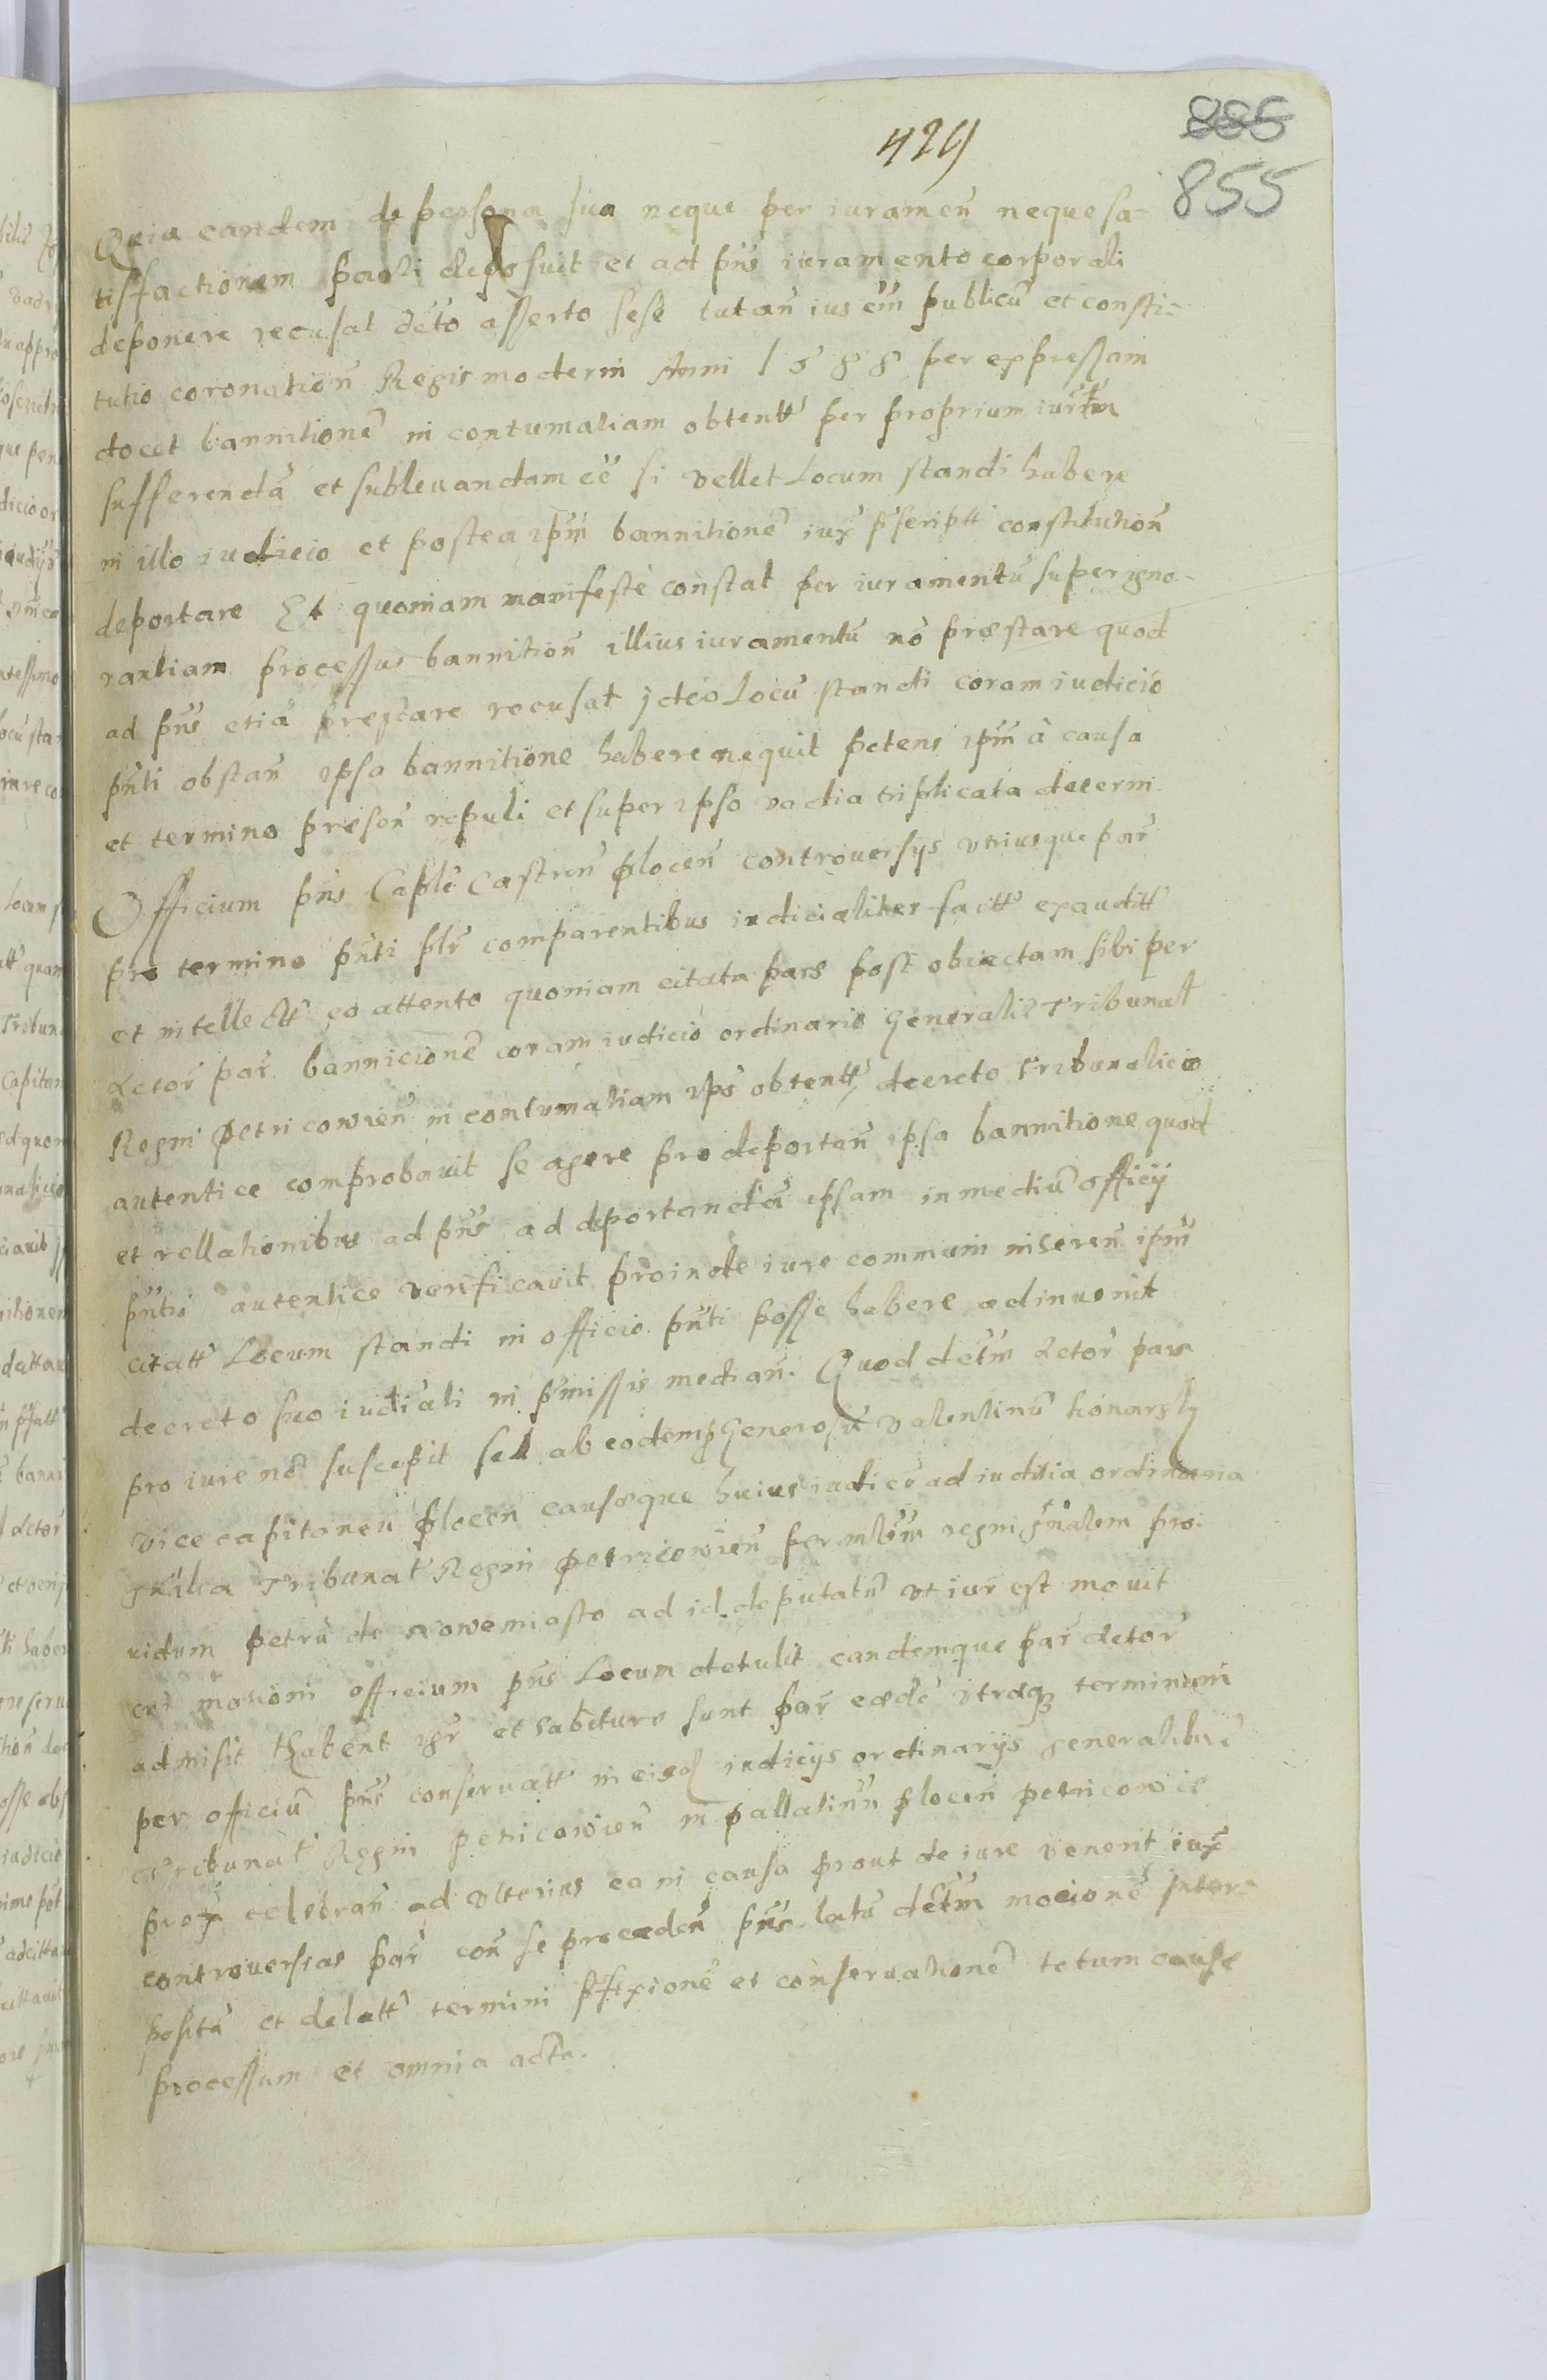 429
885
855
Quia eandem de persona sua neque per iuramen̄ neque sa=
tisfactionem parti deposuit et ad pn̄s iuramento corporali
deponere recusat dc̄to asserto sese tutan̄ ius em̄ publicū et consti=
tutio coronation̄ Regis moderni Anni 1588 per expressam
docet bannitionē in contumatiam obtentt per proprium iurm̄
sufferendā et subleuandam ee̅ si vellet Locum standi habere
in illo iudicio et postea ipm̄ bannitionē iux p̄script constitution̄
deportare Et quoniam manifestè constat per iuramentū super igno-
rantiam processus bannition̄ illius iuramentū nō præstare quod
ad pn̄s etiā prestare recusat jdeo Locū standi coram iudicio
pn̄ti obstan̄ ipsa bannitione habere nequit petens ipm̄ à causa
et termino presen̄ repuli et super ipso vadia triplicata decerni
Officium pn̄s Caplē Castren̄ plocen̄ controuersys vtriusque par̄
pro termino pn̄ti plr̄ comparentibus iudicialiter factt exauditt
et intellectt eo attento quoniam citata pars post obiectam sibi per
Actor̄ par̄ bannicionē coram iudicio ordinario Generalis Tribunal̄
Regni Petricowien̄ in contumatiam ips̄ obtentt, decreto Tribunalicio
autentice comprobauit se agere pro deportan̄ ipsa bannitione quod
et rellationibus ad pn̄s ad deportandā ipsam in mediū officij
pn̄tis autentice verificauit proinde iure communi inheren̄ ipm̄
citatt Locum standi in officio pn̄ti posse habere adinuenit
decreto suo iudiali in p̄missis median̄. Quod dctm̄ Actor̄ pars
pro iure nō suscepit sed ab eodem Generosū Valentinū
vice capitaneū plocen̄ causæque huius iudicē ad iuditia ordinaria
gnālia Tribunal̄ Regni petricowien̄ per regni gnālem pro-
uidum Petrū de Nowemiasto ad id deputatū vt iur̄ est mouit
cui motioni officium pn̄s Locum detulit eandemque par̄ Actor̄
admisit Habent igr̄ et habiture sunt par̄ eædē vtræq3 terminum
per officiū pn̄s conseruatt in eisd iudicijs ordinarijs generalibus
Tribunal̄ Regni petricowien̄ in pallatinū plocen̄ petricowie
prox celebran̄ ad vlterius ea in causa prout de iure venerit iux
controuersias par̄ con̄ se proceden̄ pn̄s latū dctm̄ mocionē inter-
positā et delatt termini p̄fixionē et conseruationē totum causæ
processum et omnia acta.